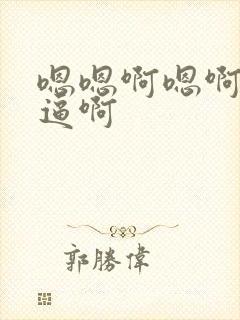 嗯嗯啊嗯啊
逼啊
郭勝偉